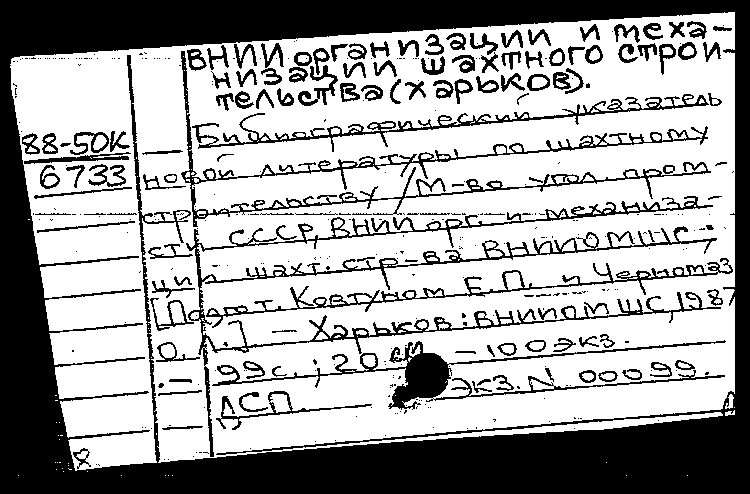 ВНИИ организации и меха-
низации шахтного строи-
тельства (Харьков).
88-50К
6733
Библиографический указатель
новой литературы по шахтному
строительству / М-во угол. пром-
сти СССР, ВНИИ орг. и механиза-
ции шахт. стр-ва ВНИИОМШС;
[Подгот. Ковтуном Е.П. и Черномаз
О.Л.] – Харьков: ВНИИОМШС, 1987
.– 99 с.; 20 см – 100 экз.
ДСП. Экз. N 00099.